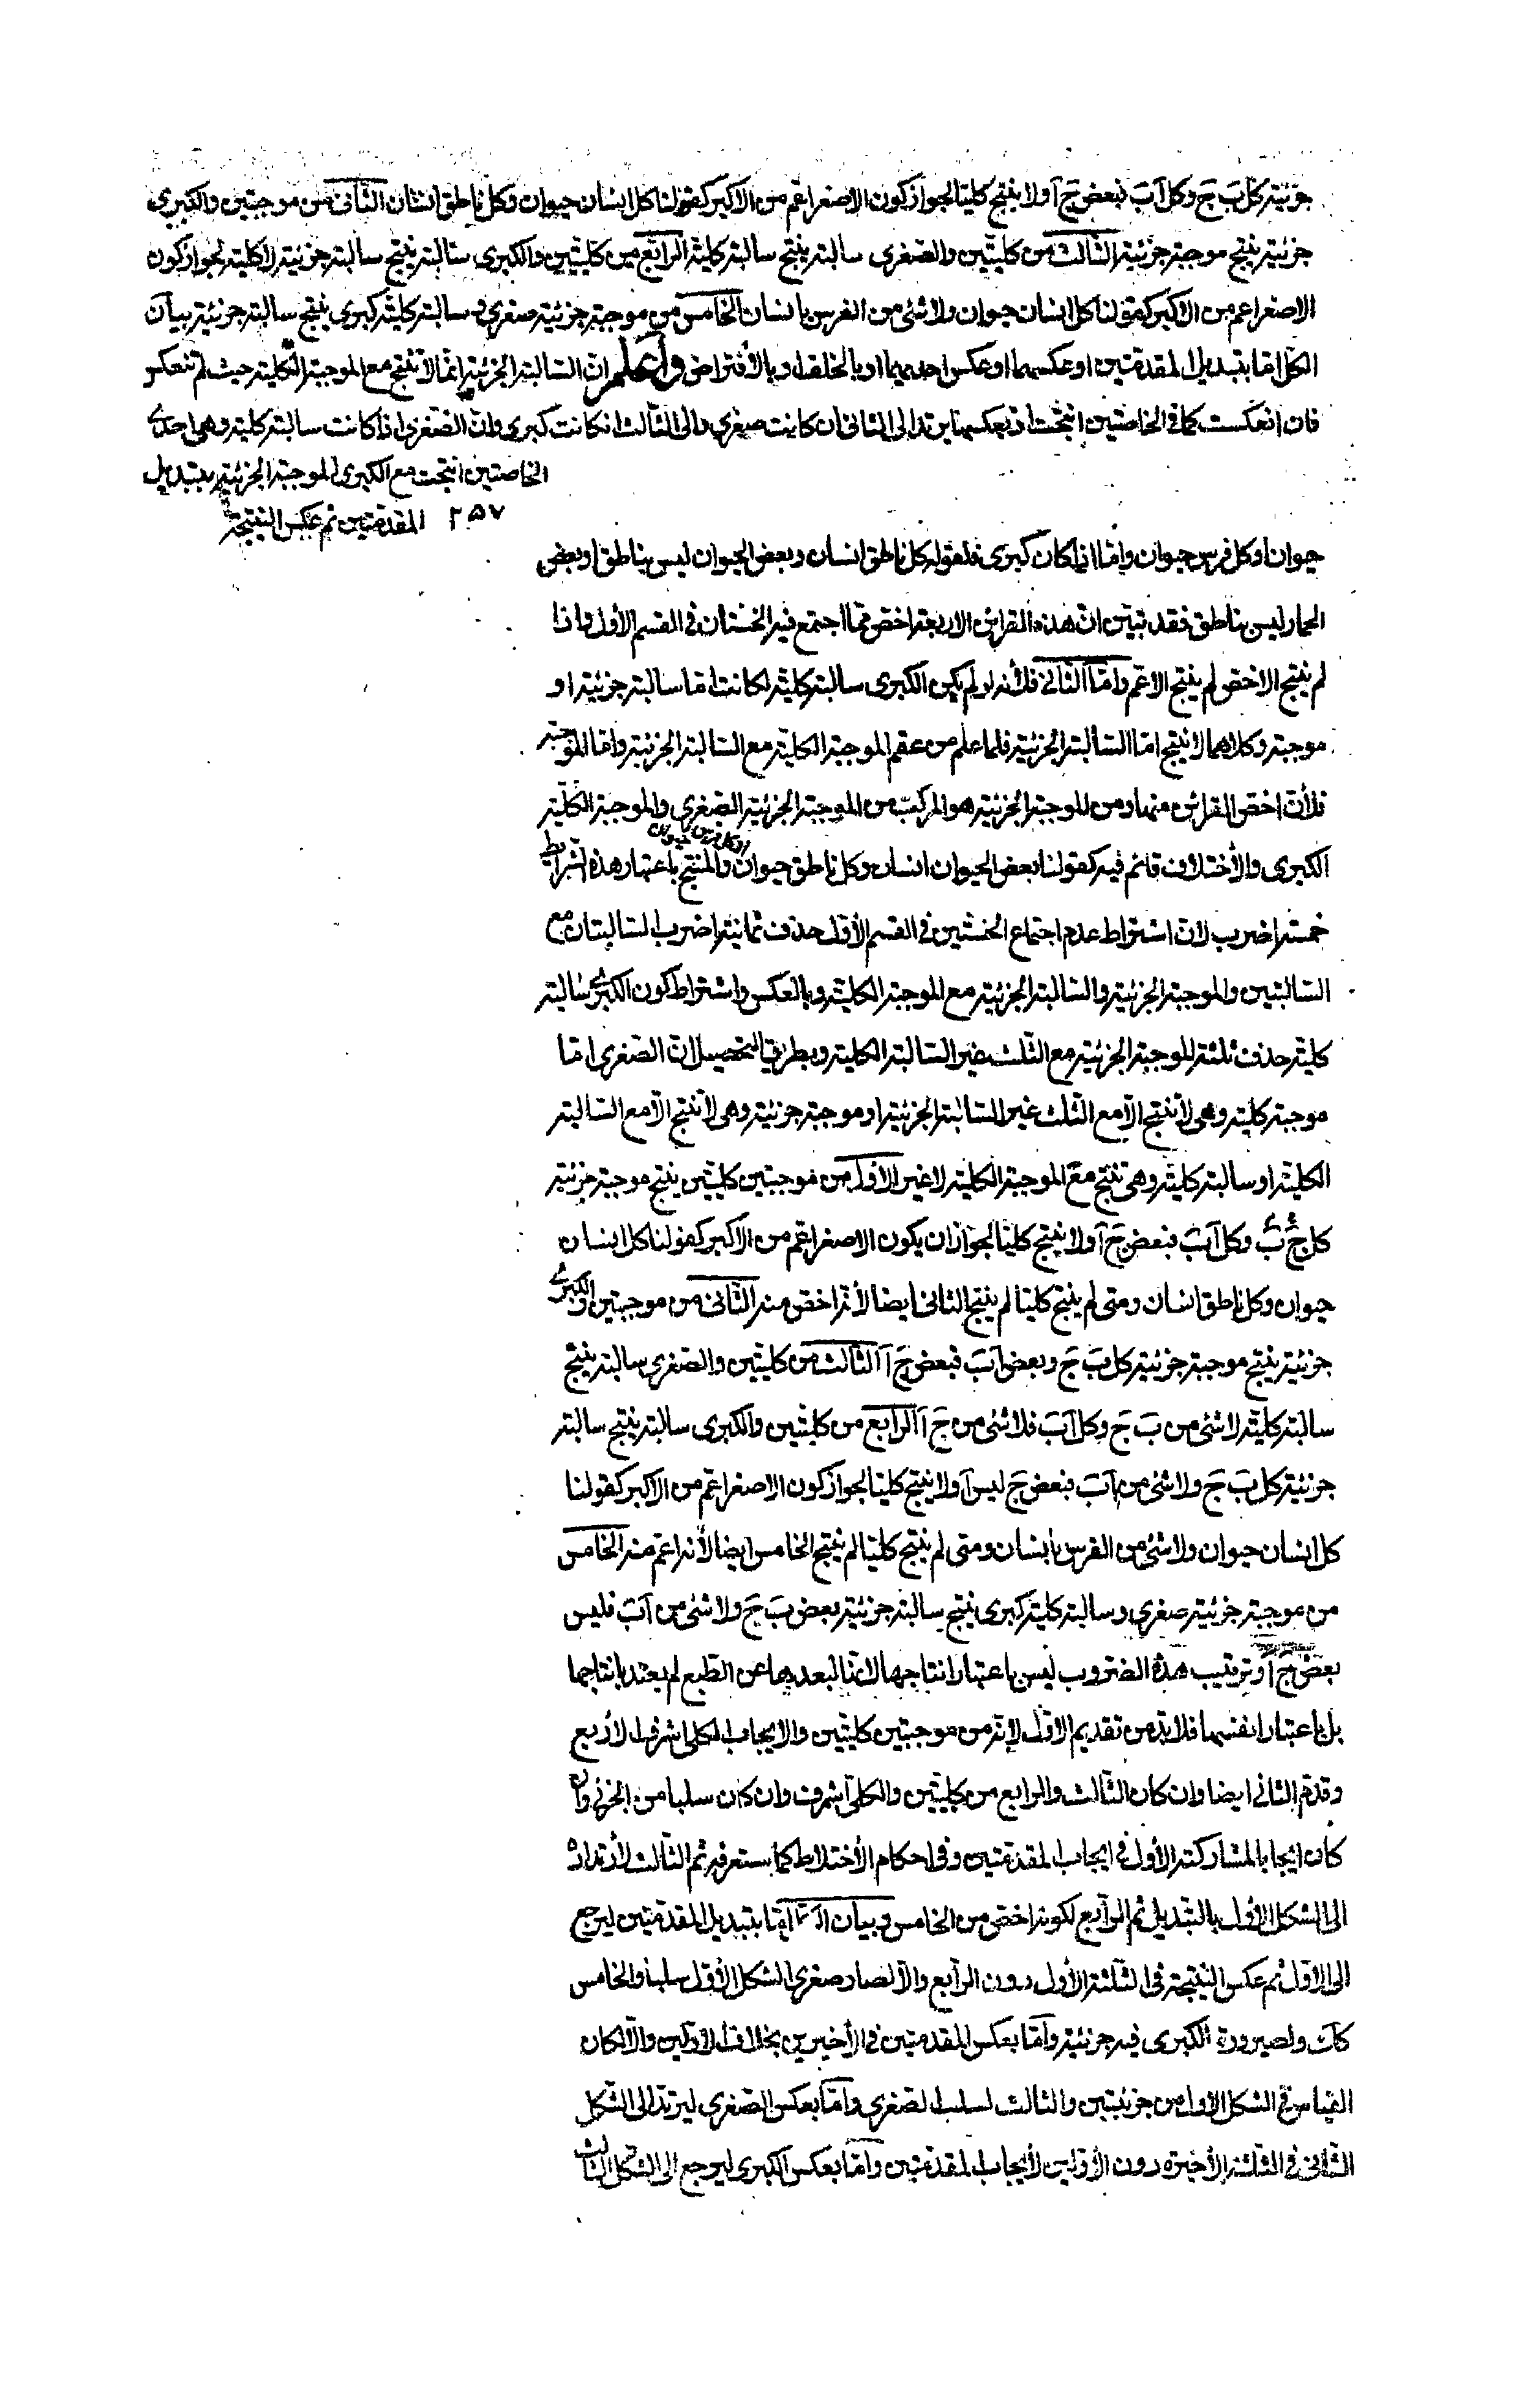 جزئية كل بَ جَ وكل آبَ فبعض جَ آ ولا ينتج كليا لجواز كون الاصغر اعم من الاكبر كقولنا كل انسان حيوان وكل ناطق انسان الثانى من موجبتين والكبرى
جزئية ينتج موجبة جزئية الثالث من كليتين والصغرى سالبة ينتج سالبة كلية الرابع من كليتين والكبرى سالبة ينتج سالبة جزئية لا كلية لجواز كون
الاصغر اعم من الاكبر كقولنا كل انسان حيوان ولا شئ من الفرس بانسان الخامس من موجبة جزئية صغرى و سالبة كلية كبرى ينتج سالبة جزئية بيان
الكل اما بتبديل المقدمتين او عكسهما او عكس احديهما او بالخلف او بالأفتراض واعلم ان السالبة الجزئية انما لا تنتج مع الموجبة الكلية حيث لم تنعكس
فان انعكست كما فى الخاصتين انتجت اذ بعكسها يرتد الى الثانى ان كانت صغرى والى الثالث ان كانت كبرى وان الصغرى اذا كانت سالبة كلية وهى احدى
الخاصتين انتجت مع الكبرى الموجبة الجزئية بتبديل
المقدمتين ثم عكس النتيجة ٢٥٧
حيوان او كل فرس حيوان واما اذا كان كبرى فلقوله كل ناطق انسان وبعض الحيوان ليس بناطق او بعض
الحمار ليس بناطق فقد تبين ان هذه القراين الاربعة اخص مما اجتمع فيه الخستان فى القسم الأول واذا
لم ينتج الاخص لم ينتج الاعم واما الثانى فلأنه لو لم يكن الكبرى سالبة كلية لكانت اما سالبة جزئية او
موجبة وكلاهما لا ينتج اما السالبة الجزئية فلما علم من عقم الموجبة الكلية مع السالبة الجزئية واما الموجبة
فلأن اخص القراين منها ومن الموجبة الجزئية هو المركب من الموجبة الجزئية الصغرى والموجبة الكلية
الكبرى والأختلاف قائم فيه كقولنا بعض الحيوان انسان وكل ناطق حيوان او كل فرس حيوان والمنتج باعتبار هذه الشرايط
خمسة اضرب لان اشتراط عدم اجتماع الخستين فى القسم الأول حذف ثمانية اضرب السالبتان مع
السالبتين والموجبة الجزئية والسالبة الجزئية مع الموجبة الكلية وبالعكس واشتراط كون الكبرى سالبة
كلية حذف ثلثة الموجبة الجزئية مع الثلث غير السالبة الكلية وبطريق التحصيل لان الصغرى اما
موجبة كلية وهى لا تنتج الا مع الثلث غير السالبة الجزئية او موجبة جزئية وهى لا تنتج الا مع السالبة
الكلية او سالبة كلية وهى تنتج مع الموجبة الكلية لا غير الاول من موجبتين كليتين ينتج موجبة جزئية
كل جَ بَ وكل آبَ فبعض جَ آ ولا ينتج كليا لجواز ان يكون الاصغر اعم من الاكبر كقولنا كل انسان
حيوان وكل ناطق انسان ومتى لم ينتج كليا لم ينتج الثانى ايضا لأنه اخص منه الثانى من موجبتين والكبرى
جزئية ينتج موجبة جزئية كل بَ جَ وبعض آبَ فبعض جَ آ الثالث من كليتين والصغرى سالبة ينتج
سالبة كلية لا شئ من بَ جَ وكل آبَ فلا شئ من جَ آ الرابع من كليتين والكبرى سالبة ينتج سالبة
جزئية كل بَ جَ ولا شئ من آبَ فبعض جَ ليس آ ولا ينتج كليا لجواز كون الاصغر اعم من الاكبر كقولنا
كل انسان حيوان ولا شئ من الفرس بانسان ومتى لم ينتج كليا لم ينتج الخامس ايضا لأنه اعم منه الخامس
من موجبة جزئية صغرى وسالبة كلية كبرى ينتج سالبة جزئية بعض بَ جَ ولا شئ من آبَ فليس
بعض جَ آ وترتيب هذه الضروب ليس باعتبار انتاجها لانها لبعدها عن الطبع لم يعتد بانتاجها
بل باعتبار انفسها فلا بد من تقديم الاول لانه من موجبتين كليتين والايجاب الكلى اشرف الاربع
وقدم الثانى ايضا وان كان الثالث والرابع من كليتين والكلى اشرف وان كان سلبا من الجزئى وان
كان ايجابا لمشاركته الأول فى ايجاب المقدمتين وفى احكام الأختلاط كما ستعرفه ثم الثالث لأرتداده
الى الشكل الأول بالتبديل ثم الرابع لكونه اخص من الخامس وبيان اما بتبديل المقدمتين ليرجع
الى الاول ثم عكس النتيجة فى الثلثة الأول دون الرابع والا لصار صغرى الشكل الأول سلبا والخامس
كك ولصيرورة الكبرى فيه جزئية واما بعكس المقدمتين فى الأخيرين بخلاف الاولين والا لكان
القياس فى الشكل الاول من جزئيتين والثالث لسلب الصغرى واما بعكس الصغرى ليرتد الى الشكل
الثانى فى الثلثة الأخيرة دون الأولين لأيجاب المقدمتين واما بعكس الكبرى ليرجع الى الشكل الثالث